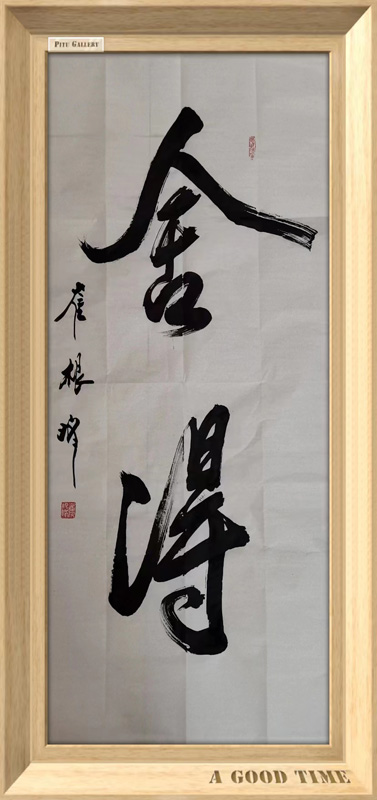 PITU GALLERY
舍
得
崔根峰
A GOOD TIME